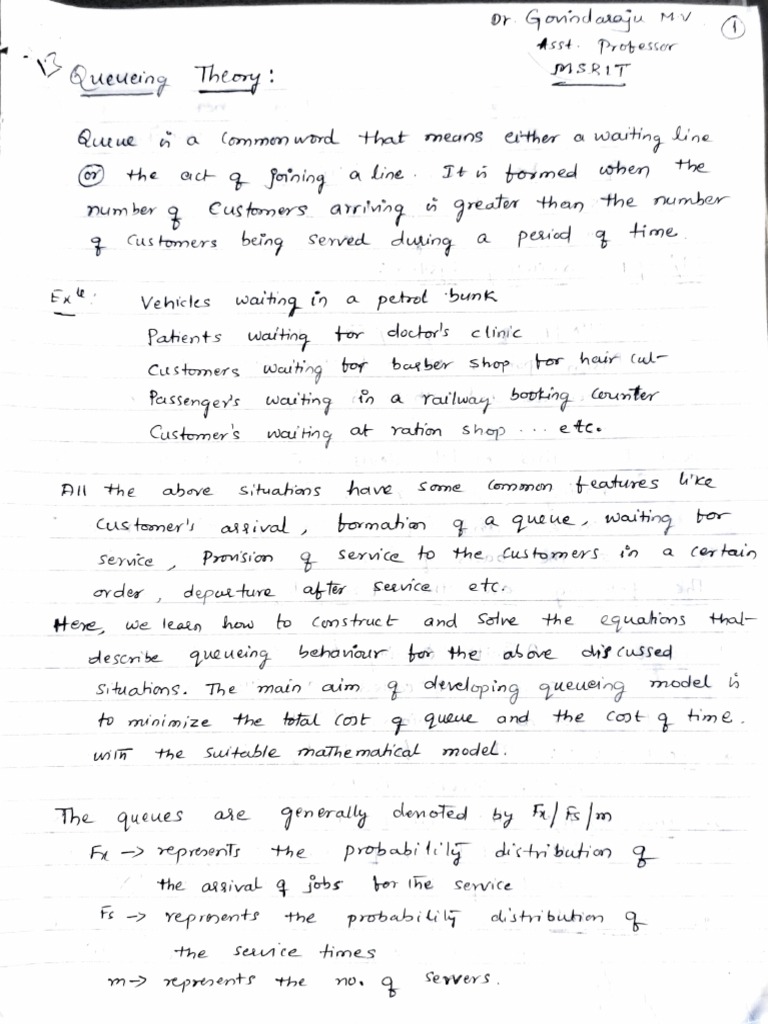 Dr. Govindaraju M V
Asst. Professor
MSRIT
1
Queueing Theory:
Queue is a common word that means either a waiting line
(or) the act of joining a line. It is formed when the
number of customers arriving is greater than the number
of customers being served during a period of time.
Ex: Vehicles waiting in a petrol bunk
Patients waiting for doctor's clinic
Customers waiting for barber shop for hair cut
Passenger's waiting in a railway booking counter
Customer's waiting at ration shop ... etc.
All the above situations have some common features like
customer's arrival, formation of a queue, waiting for
service, Provision of service to the customers in a certain
order, departure after service etc.
Here, we learn how to construct and solve the equations that
describe queueing behaviour for the above discussed
situations. The main aim of developing queueing model is
to minimize the total cost of queue and the cost of time.
with the suitable mathematical model.
The queues are generally denoted by Fx/Fs/m
Fx → represents the probability distribution of
the arrival of jobs for the service
Fs → represents the probability distribution of
the service times
m → represents the no. of servers.